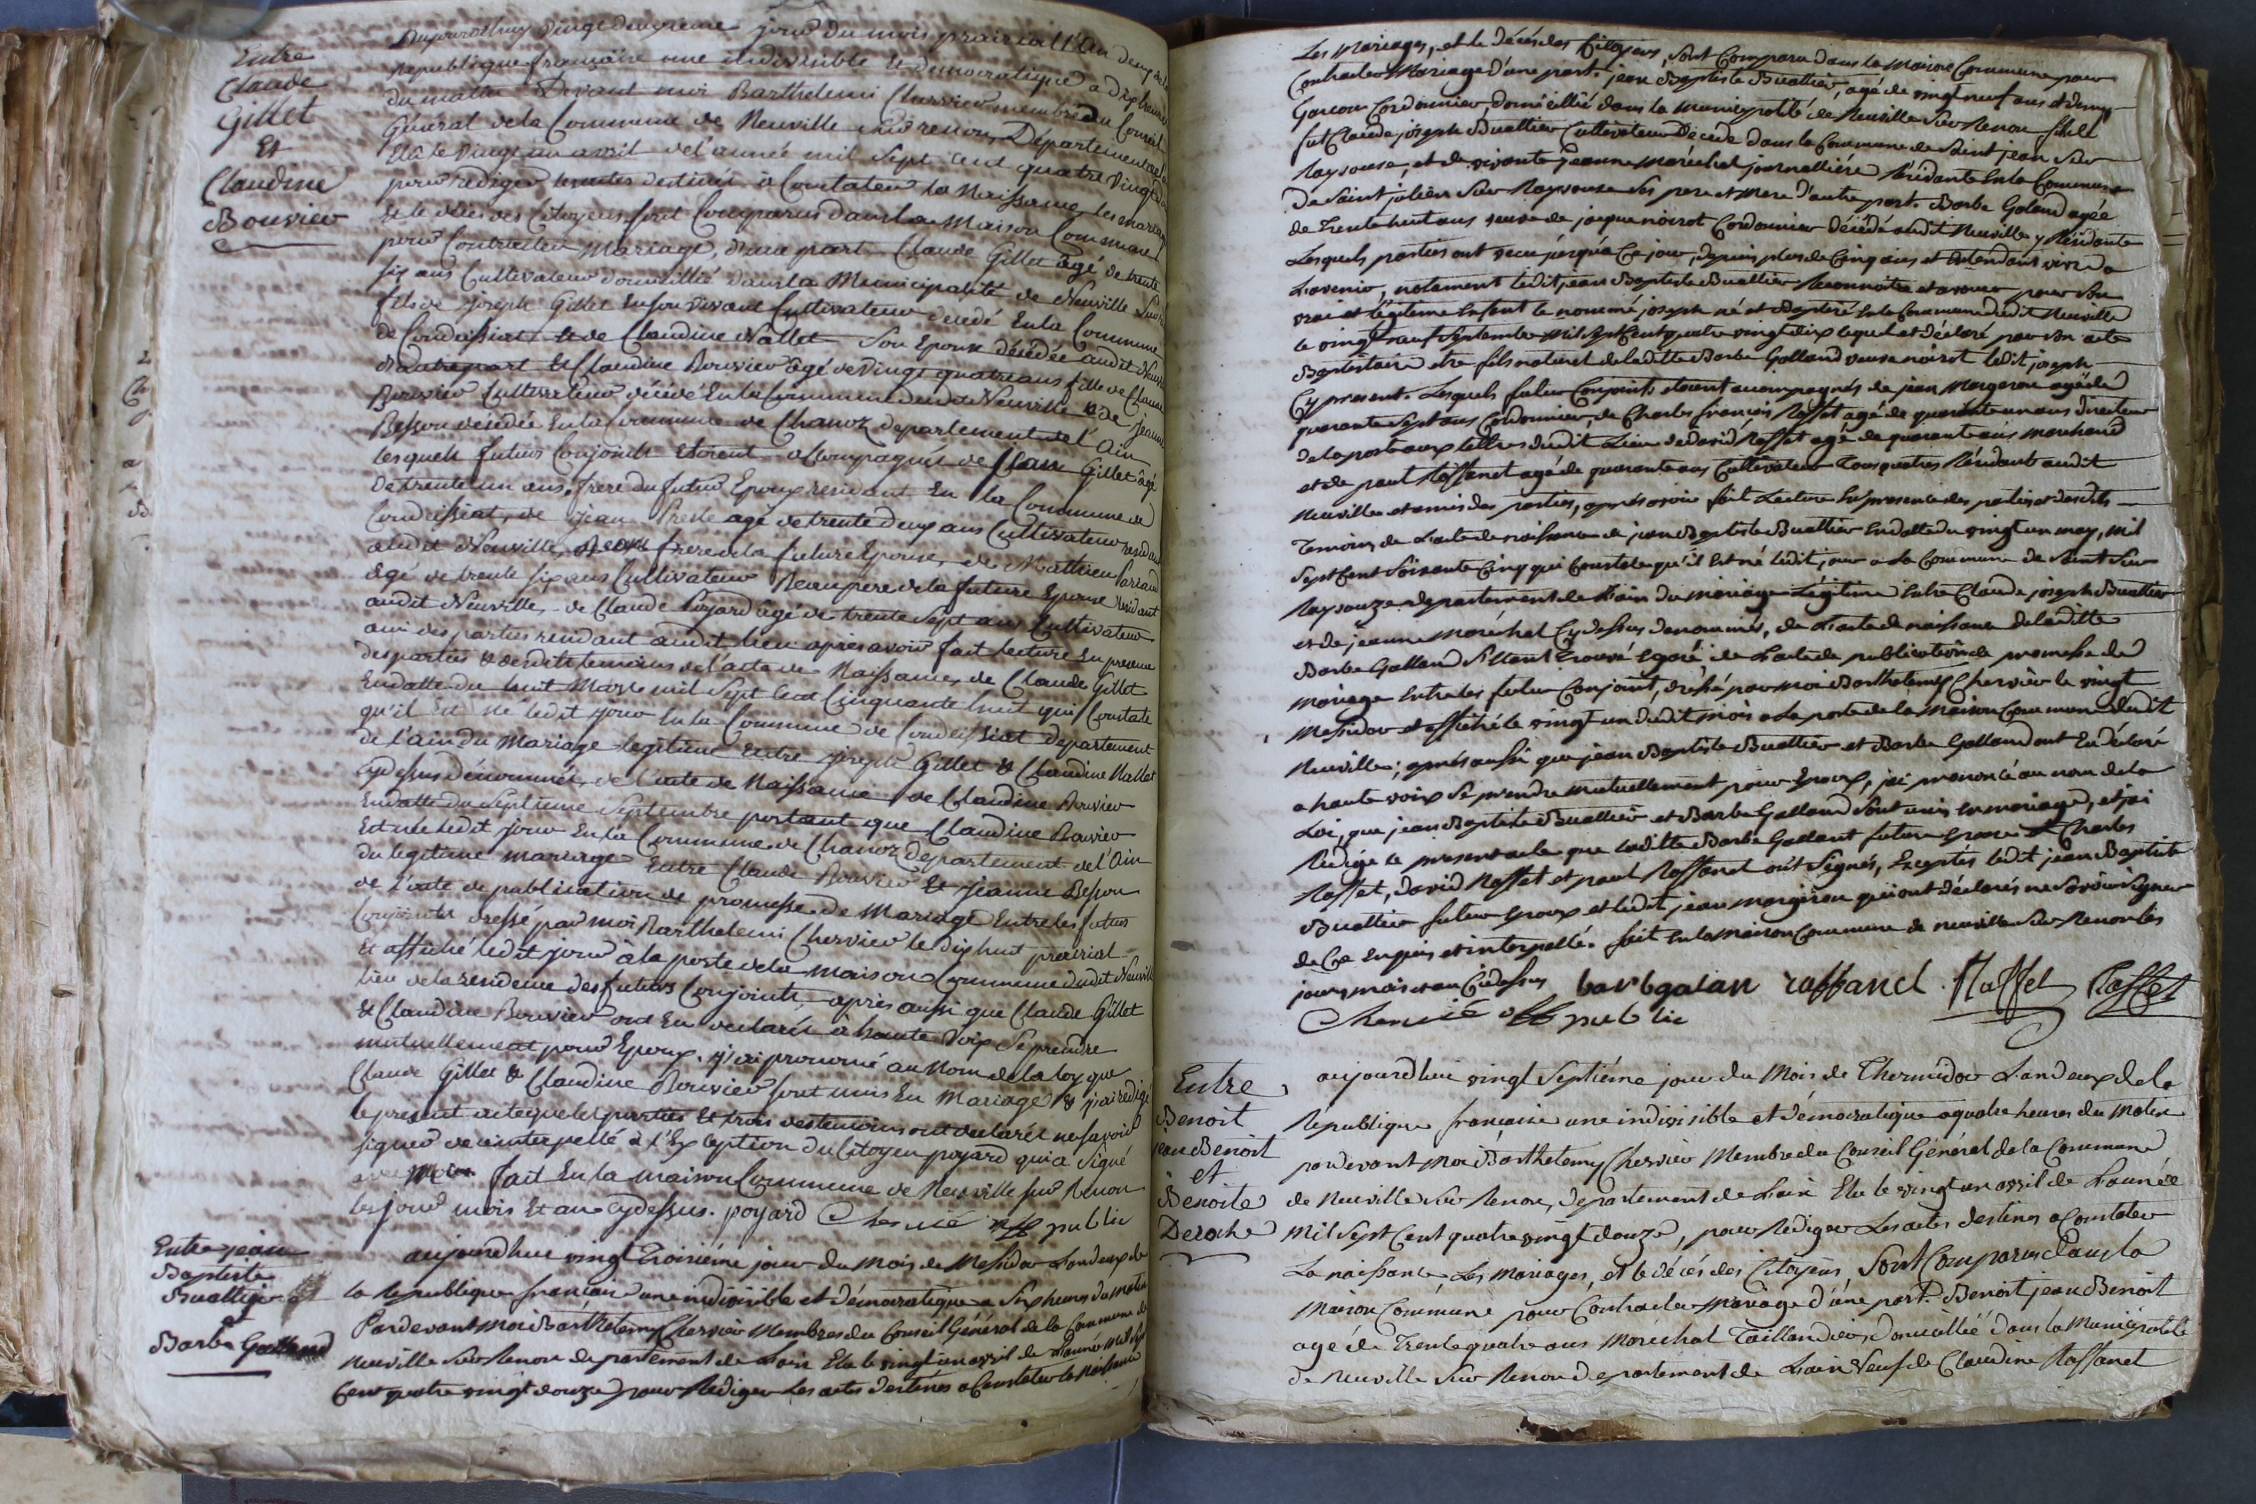 Entre
Claude
Gillet
Et
Claudine
Bouvier
Aujourdhuy vingt deuxieme jour du mois prairial l'an deux de la
Republique française une indivisible et democratique a dix heures
du matin Devant moi Barthelemi Chervier membre du Conseil
Général de la Commune de Neuville sur renon, Departement de
Elu le vingt un avril de l'année mil sept cent quatre vingt
pour rediger les actes destinés à Constater la Naissance, les mariages
et le décès des Citoyens, sont Comparus dans la Maison Commune
pour Contracter Mariage, d'une part Claude Gillet âgé de trente
six ans Cultivateur domicillié dans la Municipalité de Neuville Sur
fils de Joseph Gillet En son vivant Cultivateur decedé En la Commune
de Condeissiat et de Claudine Nallet Son Epouse décédée audit Neuville
d'autre part Et Claudine Bouvier âgé de vingt quatre ans fille de Claude
Bouvier Cultivateur décédé En la Commune dudit Neuville & de jeanne
Besson décédée En la Commune de Chanoz departement de l'Ain
lesquels futurs Conjoints Etoient accompagnés de Jean Gillet âgé
de trente un ans, frere du futur Epoux residant En la Commune de
Condeissiat, de jean Preste agé de trente deux ans Cultivateur residant
audit Neuville, Beau frere de la future Epouse, de Mathieu Pariaud
âgé de trente six ans Cultivateur Beaupere de la future Epouse residant
audit Neuville, de Claude Poyard âgé de trente Sept ans Cultivateur
ami des parties residant audit lieu après avoir fait lecture En presence
des parties & desdits temoins de l'acte de Naissance de Claude Gillet
En datte du huit Mars mil Sept Cent Cinquante huit qui Constate
qu'il est né ledit jour En la Commune de Condeissiat departement
de l'ain du Mariage legitime Entre joseph Gillet & Claudine Nallet
cydessus dénommés, de l'acte de Naissance de Claudine Bouvier
En datte du Septieme Septembre portant que Claudine Bouvier
Est née ledit jour En la Commune de Chanoz departement de l'Ain
du legitime mariage Entre Claude Bouvier Et Jeanne Besson
de l'acte de publication de promesse de Mariage Entre les futurs
Conjoints dressé par moi Barthelemi Chervier le dix huit prairial
Et affiché ledit jour à la porte de la Maison Commune dudit Neuville
lieu de la residence des futurs Conjoints, après aussi que Claude Gillet
& Claudine Bouvier ont Eu declaré à haute Voix Se prendre
mutuellement pour Epoux. j'ai prononcé au Nom de la loy que
Claude Gillet & Claudine Bouvier sont unis En Mariage & j'ai rédigé
le present acte que les parties Et trois des temoins ont declarés ne savoir
signer de ce interpellé à l'Exception du Citoyen poyard qui a Signé
avec moi fait En la maison Commune de Neuville sur Renon
les jour mois Et an cydessus. poyard Chervié off public
Entre jean
Baptiste
Buattier
et
Barbe Galland
aujourdhui vingt Troisième jour du Mois de Messidor L'an deux de
la Republique française une indivisible et démocratique a Six heures du matin
Pardevant Moi Barthelemy Chervier Membre du Conseil Général de la Commune de
Neuville Sur Renon departement de L'ain Elu le vingt un avril de L'année Mil Sept
Cent quatre vingt douze, pour Rediger Les actes destinés a Constater la Naissance
Les Mariages, et le décès des Citoyens, sont Comparu dans la Maison Commune pour
Contracter Mariage d'une part. jean Baptiste Buattier, agé de vingt neuf ans et demy
Garçon Cordonnier, domicillié dans la Municipalité de Neuville Sur Renon fils de
fut Claude joseph Buattier Cultivateur Décédé dans la Commune de Saint jean Sur
Raysouse, et de vivante Jeanne Maréchal journallière Résidante En la Commune
de Saint julien Sur Raysouse Ses pere et Mere d'autre part. Barbe Goland agée
de Trente huit ans veuve de jacque noirot Cordonnier décédé audit Neuville y Résidante
Lesquels parties ont vecu jusqu'à Ce jour, depuis plus de Cinq ans et Entendant vivre a
L'avenir, notament ledit jean Baptiste Buattier Reconnoître et avouer pour Son
vrai et légitime Enfant le nommé joseph né et Baptisé En la Commune dudit Neuville
le vingt neuf Septembre Mil Sept Cent quatre vingt dix lequel est déclaré par Son acte
Baptistaire être fils naturel de laditte Barbe Galland veuve noirot ledit joseph
Cy present. Lesquels futur Conjoints etoient acompagnés de jean Margeron agé de
quarante Sept ans Cordonnier, de Charles françois Raffet agé de quarante un ans Directeur
de la poste aux lettres dudit Lieu de david Raffet agé de quarante ans Marchand
et de paul Raffanel agé de quarante ans Cultivateur Tous quatres Résidants audit
Neuville et amis des parties, après avoir fait Lecture En presence des parties et desdits
Temoins de L'acte de naissance de jean Baptiste Buattier En datte du vingt un may, mil
Sept Cent Soixante Cinq qui Constate qu'il Est né ledit jour a la Commune de Saint Sur
Raysouze departement de L'ain du mariage Légitime Entre Claude joseph Buattier
et de jeanne Maréchal Cy dessus denommés, de L'acte de naissance de laditte
Barbe Galland S'Etant Trouvé Egaré, de L'acte de publication de promesse de
Mariage Entre les futur Conjoint, dressé par Moi Barthélemy Chervier le vingt
Messidor et affiché le vingt un dudit mois a La porte de la Maison Commune dudit
Neuville; après aussi que jean Baptiste Buattier et Barbe Galland ont Eu déclaré
a haute voix Se prendre Mutuellement pour Epoux, j'ai prononcé au nom de la
Loi, que jean Baptiste Buattier et Barbe Galland Sont unis En mariage, et j'ai
Redigé le present acte que laditte Barbe Galland future Epouse et Charles
Raffet, david Raffet et paul Raffanel ont Signés, Exceptés ledit jean Baptiste
Buattier futur Epoux et ledit jean Margeron qui ont déclarés ne Savoir Signer
de Ce Enquis et interpellé. fait En la Maison Commune de neuville Sur Renon les
jours mois et an Cidessus barbgalan raffanel Raffet Raffet
Chervié off public
Entre
Benoit
jean Benoit
et
Benoite
Deroche
aujourdhui vingt Septième jour du Mois de Thermidor L'an deux de la
Republique française une indivisible et démocratique a quatre heures du Matin
pardevant Moi Barthelemy Chervier Membre du Conseil Général de la Commune
de Neuville Sur Renon, departement de L'ain Elu le vingt un avril de L'année
Mil Sept Cent quatre vingt douze, pour Rediger Les actes destinés a Constater
La naissance Les Mariages, et le décès des Citoyens, Sont Comparus dans la
Maison Commune pour Contracter Mariage d'une part. Benoit jean Benoit
agé de Trente quatre ans Maréchal Taillandier, domicillié dans la Municipalité
de Neuville Sur Renon departement de L'ain veuf de Claudine Raffanel